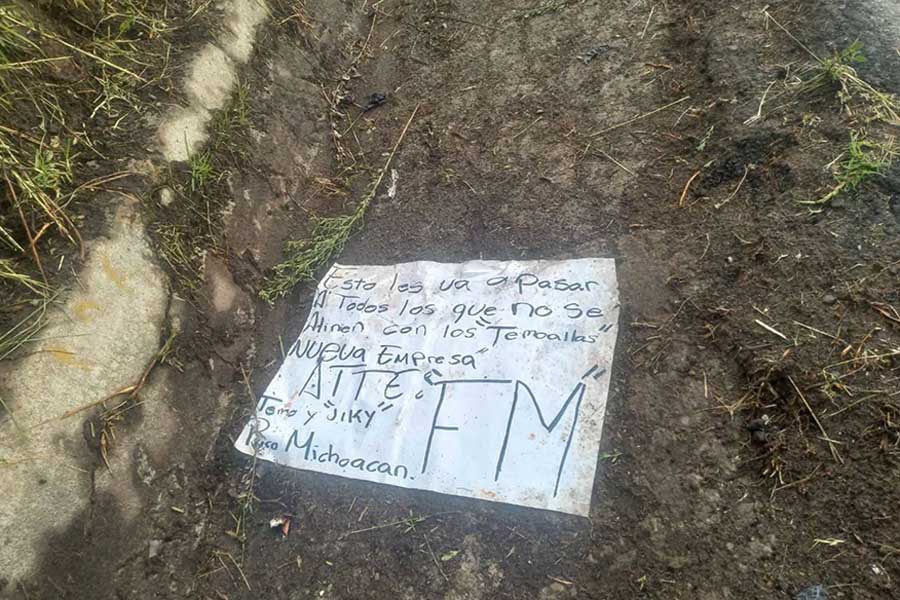 Esto les va a Pasar
A Todos los que no se
Alinen con los "Temoallas"
NUEVA EMPRESA"
ATTE: "FM"
Temo y "JIKY"
Michoacan.